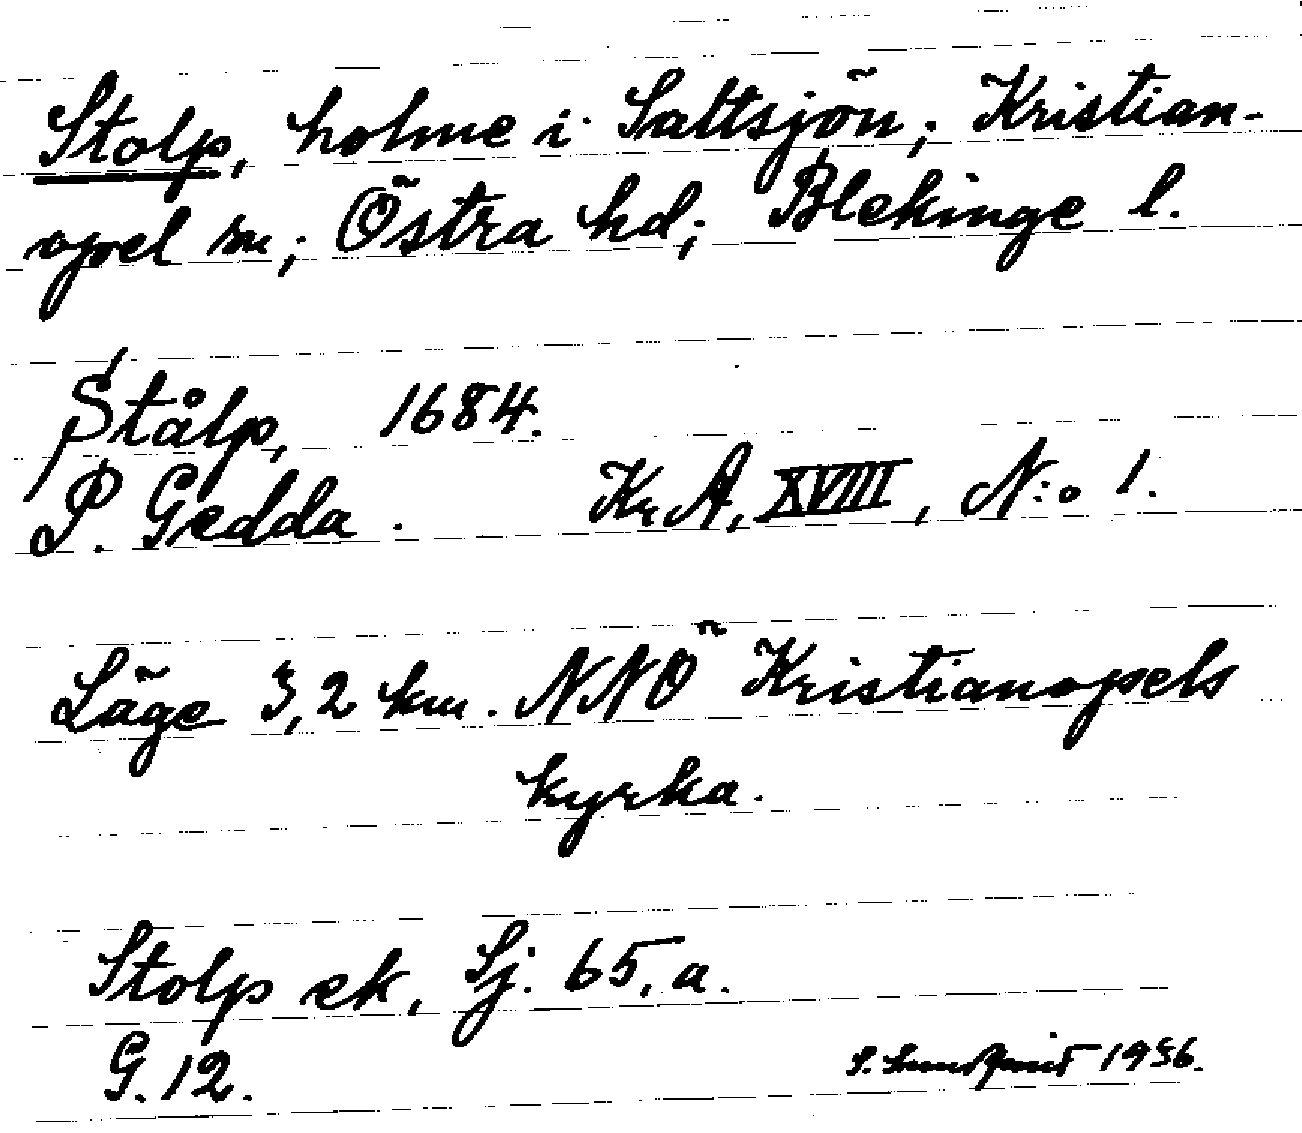 Stolp, holme i Saltsjön; Kristian-
opel sn; Östra hd; Blekinge l.
Stålp, 1684.
P. Gedda. KrA, XVIII, N:o 1.
Läge 3,2 km. NNÖ Kristianopels
kyrka.
Stolp ek, Sj. 65, a.
G. 12.
1936.